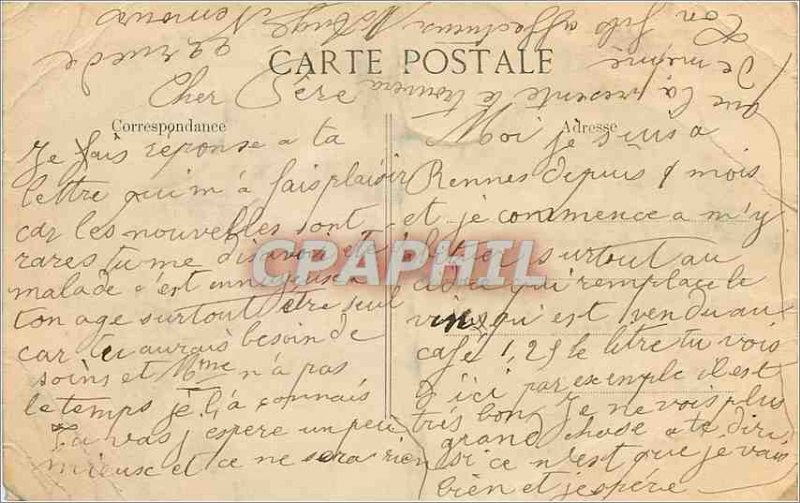 CARTE POSTALE
Correspondance
Adresse
Cher Père
Je fais reponse a ta
lettre qui m'à fais plaisir
car les nouvelles sont
rares tu me disavoir eté
malade c est ennuyeux a
ton age surtout etre seul
car tu aurais besoin de
soins et Mme n'a pas
le temps je l'a connais
Tu vas j espere un peu
mieuse et ce ne sera rien
Moi je suis a
Rennes depuis 8 mois
et je commence a m'y
surtout au
cidre qui remplace le
vin qui est vendu au
café 1,25 le litre tu vois
d ici par exemple il est
trés bon Je ne vois plus
grand chose a te dire
si ce n'est que je vais
bien et j'espére
que la presente te trouvera
de même
Ton fils affectueux
Nemours
CPAPHIL